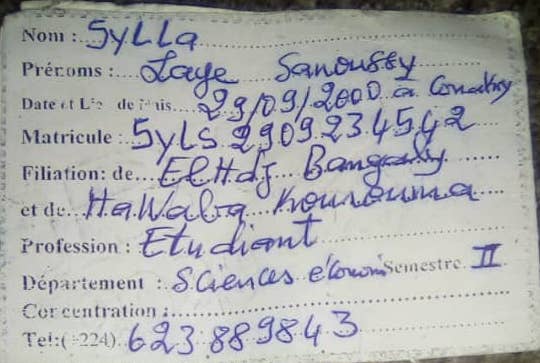 Nom : Sylla
Prénoms : Laye Sanoussy
Date et Lieu de Nais 29/09/2000 à Conakry
Matricule : Syls 2909234542
Filiation: de ElHdj Bangaly
et de HaWaba Kourouma
Profession : Etudiant
Département : Sciences économi Semestre II
Concentration :
Tel:(+224) 623 889843